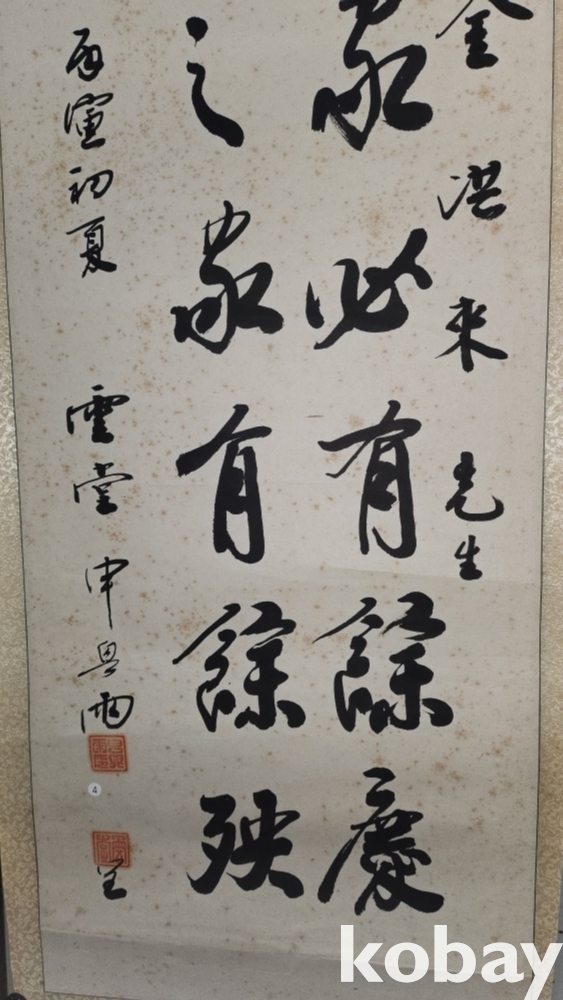 金洪来先生
家必有餘慶
之家有餘殃
丙寅初夏 雲堂 申 雨
呈
4
kobay